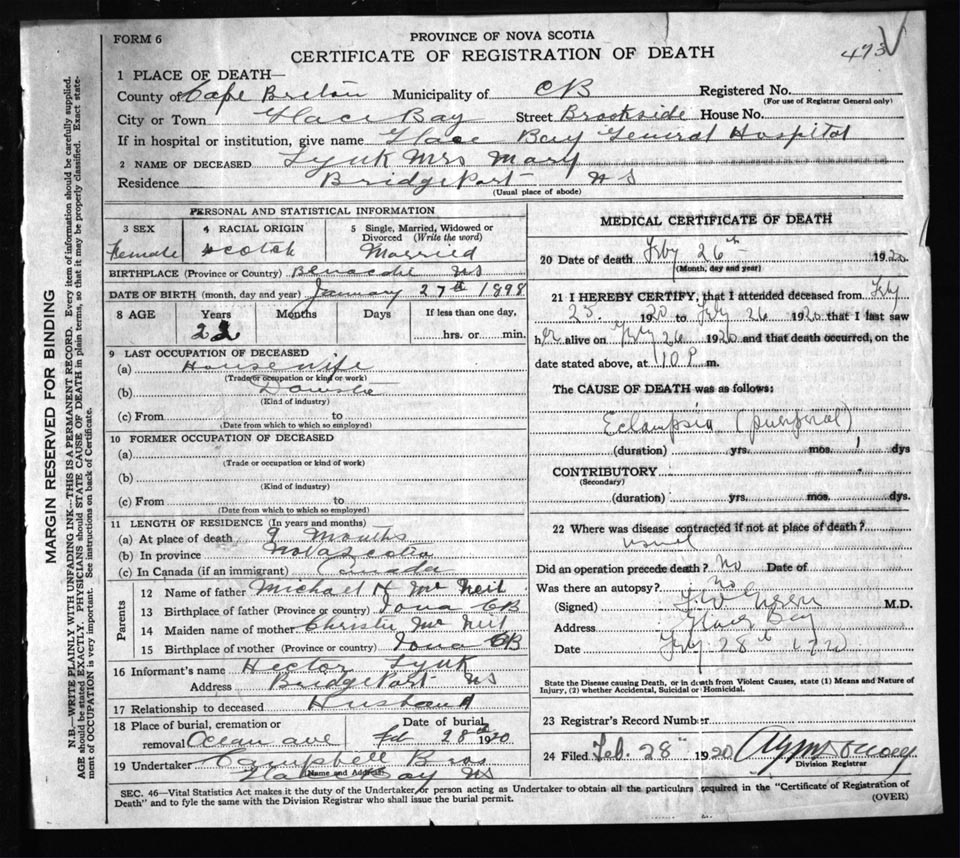 FORM 6
PROVINCE OF NOVA SCOTIA
CERTIFICATE OF REGISTRATION OF DEATH
473
1 PLACE OF DEATH—
County of Cape Breton Municipality of CB Registered No.
(For use of Registrar General only)
City or Town Glace Bay Street Brookside House No.
If in hospital or institution, give name Glace Bay General Hospital
2 NAME OF DECEASED Lynk Mrs Mary
Residence Bridgeport NS
(Usual place of abode)
PERSONAL AND STATISTICAL INFORMATION
3 SEX 4 RACIAL ORIGIN 5 Single, Married, Widowed or Divorced (Write the word)
Female Scotch Married
BIRTHPLACE (Province or Country) Benacadie NS
DATE OF BIRTH (month, day and year) January 27th 1898
8 AGE Years Months Days If less than one day,
22 hrs. or min.
9 LAST OCCUPATION OF DECEASED
(a) Housewife
(Trade or occupation or kind of work)
(b) Domestic
(Kind of industry)
(c) From to
(Date from which to which so employed)
10 FORMER OCCUPATION OF DECEASED
(a)
(Trade or occupation or kind of work)
(b)
(Kind of industry)
(c) From to
(Date from which to which so employed)
11 LENGTH OF RESIDENCE (In years and months)
(a) At place of death 9 Months
(b) In province Nova Scotia
(c) In Canada (if an immigrant) Canada
Parents
12 Name of father Michael H Mc Neil
13 Birthplace of father (Province or country) Iona CB
14 Maiden name of mother Christie Mc Neil
15 Birthplace of mother (Province or country) Iona CB
16 Informant's name Hector Lynk
Address Bridgeport NS
17 Relationship to deceased Husband
18 Place of burial, cremation or removal Ocean ave Date of burial Feb 28th 1920
19 Undertaker Campbell Bros
(Name and Address) Glace Bay NS
MEDICAL CERTIFICATE OF DEATH
20 Date of death Feby 26th 1920
(Month, day and year)
21 I HEREBY CERTIFY, that I attended deceased from Feby
25. 1920 to Feby 26 1920 that I last saw
her alive on Feby 26 1920 and that death occurred, on the
date stated above, at 10 P m.
The CAUSE OF DEATH was as follows:
Eclampsia (puerperal)
(duration) yrs. mos. 1 dys
CONTRIBUTORY
(Secondary)
(duration) yrs. mos. dys.
22 Where was disease contracted if not at place of death?
Did an operation precede death? No Date of
Was there an autopsy? no
(Signed) M.D.
Address Glace Bay
Date Feby 28th 1920
State the Disease causing Death, or in death from Violent Causes, state (1) Means and Nature of
Injury, (2) whether Accidental, Suicidal or Homicidal.
23 Registrar's Record Number
24 Filed Feb. 28th 1920
Division Registrar
SEC. 46—Vital Statistics Act makes it the duty of the Undertaker or person acting as Undertaker to obtain all the particulars required in the "Certificate of Registration of
Death" and to fyle the same with the Division Registrar who shall issue the burial permit.
(OVER)
MARGIN RESERVED FOR BINDING
N.B.—WRITE PLAINLY WITH UNFADING INK—THIS IS A PERMANENT RECORD. Every item of information should be carefully supplied.
AGE should be stated EXACTLY. PHYSICIANS should STATE CAUSE OF DEATH in plain terms, so that it may be properly classified. Exact state-
ment of OCCUPATION is very important. See instructions on back of Certificate.